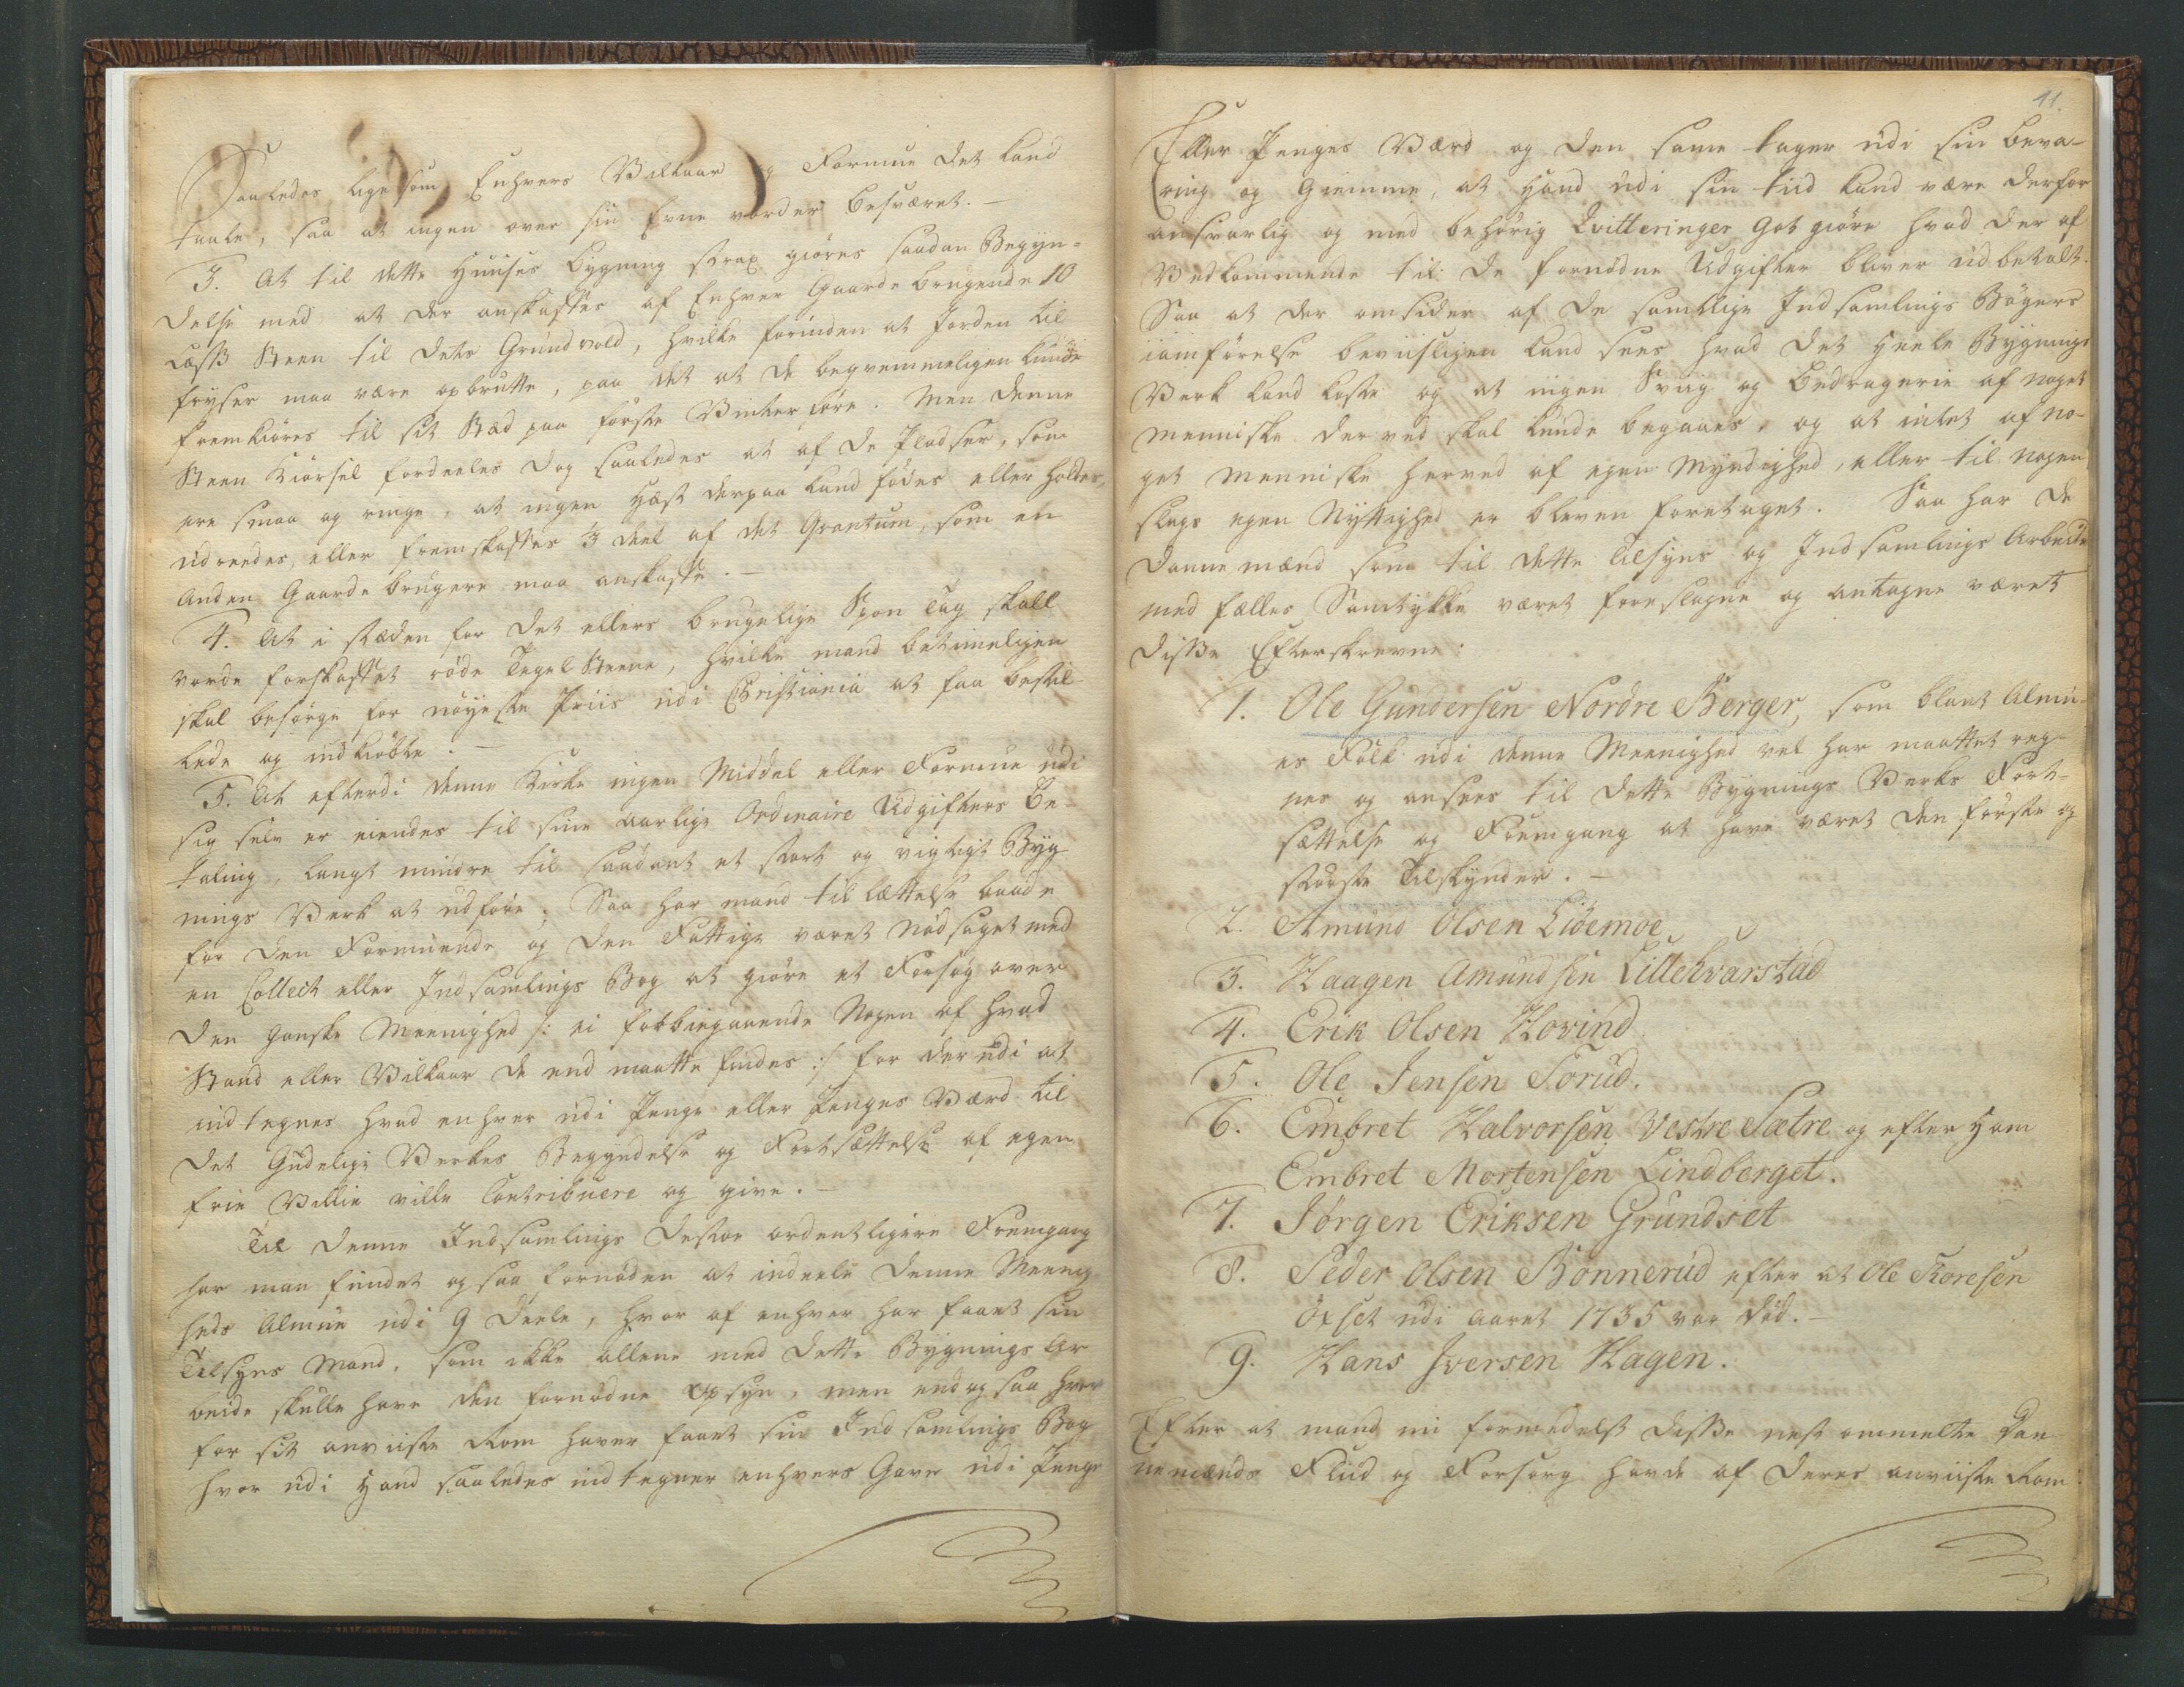 Saaledes ligesom Enhvers Vilkaar og Formue det kand
taale, saa at ingen over sin Evne vorder besværet. —
3. At til dette Huuses bygning strax giøres saadan Begyn=
delse med at der anskaffes af Enhver Gaarde brugende 10
Læss Steen til dets Grundvold, hvilke forinden at Jorden til
fryser maa være opbrutte, paa det at de beqvemmeligen kunde
fremkiøres til sit Stæd paa første Vinterføre. Men denne
Steen Kiørsel fordeeles dog saaledes at af de Pladser, som
ere smaa og ringe, at ingen Hæst derpaa kand fødes eller holdes,
udreedes, eller fremskaffes ⅓ deel af det Qvantum, som en
Anden Gaarde brugere maa anskaffe. —
4. At i stæden for det ellers brugelige Spon Tag skall
vorde forskaffet røde Tegel Steene, hvilke mand betimeligen
skal besørge for nøyeste Priis udi Christiania at faa bestil-
lede og indkiøbte. —
5. At efterdi denne Kirke ingen Middel eller Formue udi
sig selv er eiendes til sine aarlige Ordinaire Udgifters Be-
taling, langt mindre til saadant et stort og vigtigt Byg
nings Verk at udføre; Saa har mand til lættelse baade
for den Formuende og den Fattige været nødsaget med
en Collect eller Indsamlings Bog at giøre et Forsøg over
den gandske Meenighed /: ei forbiegaaende Nogen af hvad
Stand eller Vilkaar de end maatte findes :/ for der udi at
indtegnes hvad enhver udi Penge eller Penges Værd til
det Gudelige Verkes Begyndelse og Fortsættelse af egen
frie Villie ville Contribuere og give. —
Til denne Indsamlings destoe ordentligere Fremgang
har man fundet og saa fornøden at indeele denne Meenig
heds Almue udi 9 Deele, hvor af enhver har faaet sin
Tilsyns Mand, som ikke allene med dette Bygnings Ar
beide skulle have den fornødne Opsyn, men end og saa hver
for sit anviiste Rom haver faaet sin Indsamlings Bog
hvor udi Hand saaledes indtegner enhvers Gave udi Penge
11.
Eller Penges Værd og den same tager udi sin beva-
ring og Giemme, at Hand udi sin tiid kand være derfor
ansvarlig og med behørig Qvitteringer Got giøre hvad der af
Vedkommende til de fornødne Udgifter bliver udbetalt.
Saa at der omsider af de samtlige Indsamlings Bøgers
iamførelse beviisligen kand sees hvad det heele Bygnings
Verk kand koste og at ingen Sviig og Bedragerie af noget
Menniske derved skal kunde begaaes, og at intet af no-
get Menniske herved af egen Myndighed, eller til nogen
slags egen Nyttighed er bleven foretaget. Saa har de
Danne mænd som til dette Tilsyns og Indsamlings Arbeide
med fælles Samtykke været foreslagne og antagne været
disse Efterskrevne:
1. Ole Gundersen Nordre Berger, som blant Almu-
es Folk udi denne Meenighed vel har maattet reg-
nes og ansees til dette Bygnings Verks Fort-
sættelse og Fremgang at have været den første og
største Tilskynder. —
2. Amund Olsen Lidemoe
3. Haagen Amundsen Lille Evarstad
4. Erik Olsen Hovind
5. Ole Jensen Torud.
6. Embret Halvorsen Vestre Sætre og efter Ham
Embret Mortensen Lindberget.
7. Jørgen Eriksen Grundset
8. Peder Olsen Bonnerud efter at Ole Toresen
Øxset udi Aaret 1735 var Død. —
9. Hans Iversen Hagen.
Efter at mand nu formedelst disse nest ommelte Dan
nemænds Fliid og Forsorg havde af deres anviiste Rom